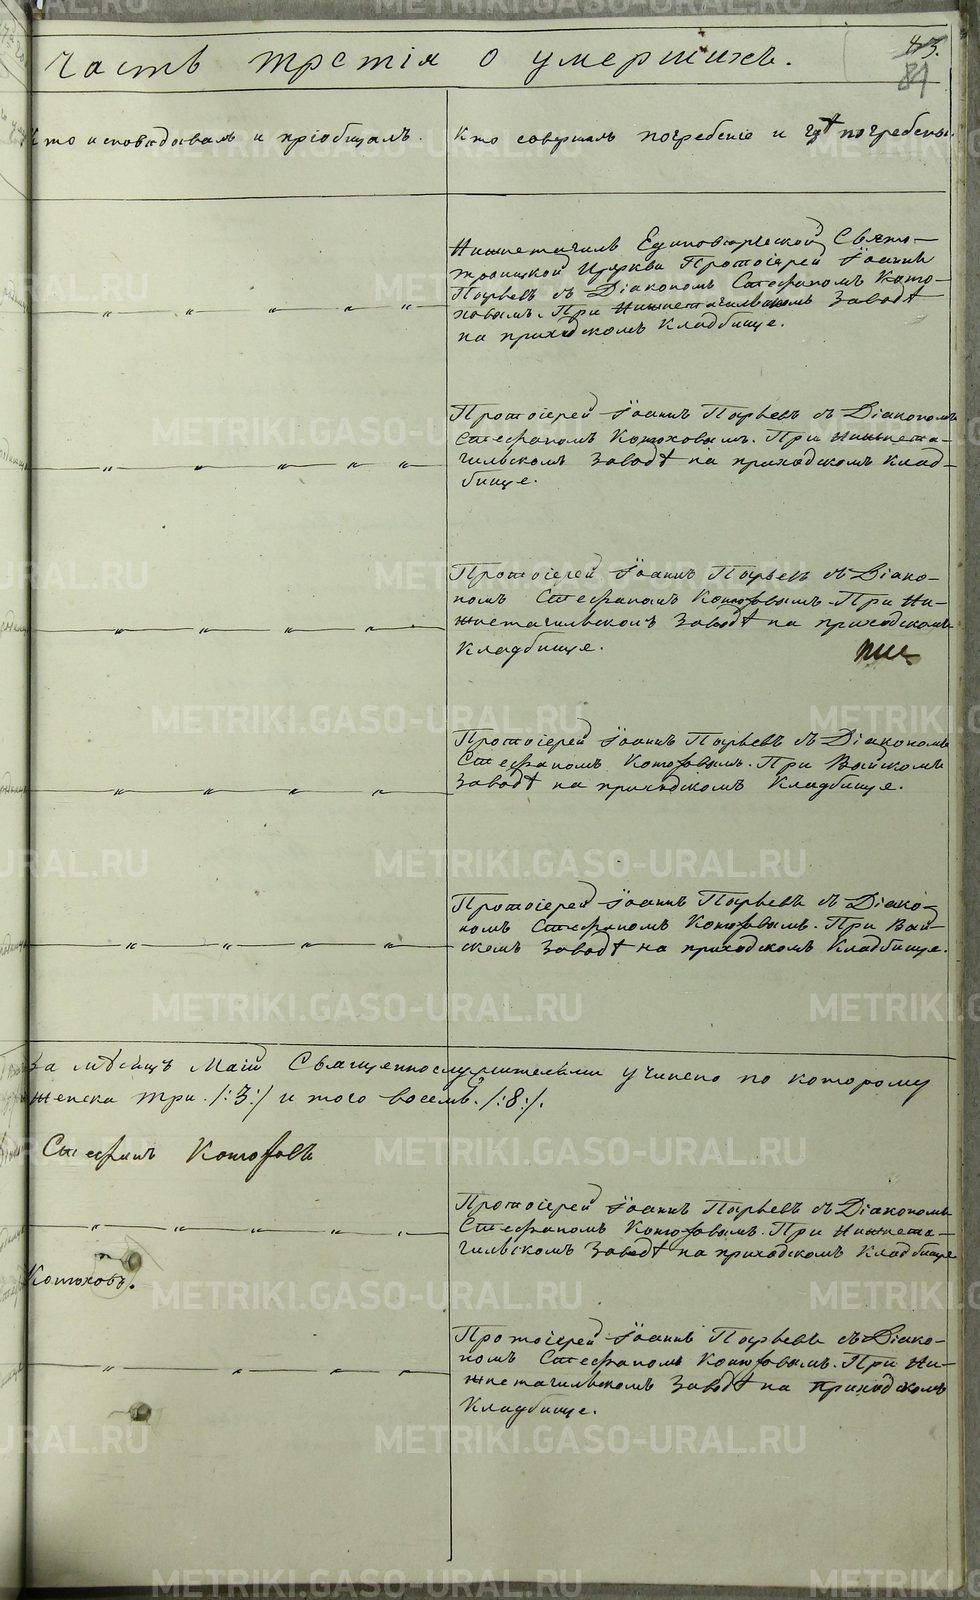 43.
81
Часть третія о умершихъ.
Кто исповѣдывалъ и пріобщалъ.
Кто совершалъ погребеніе и гдѣ погребены.
Нижнетагилъ Единовѣрческой Свято-
троицкой Церкви Протоіерей Іоаннъ
Пырьевъ съ Діакономъ Стефаномъ Коню-
ховымъ. При Нижнетагильскомъ Заводѣ
на приходскомъ Кладбище.
Протоіерей Іоаннъ Пырьевъ съ Діакономъ
Стефаномъ Конюховымъ. При Нижнета-
гильскомъ Заводѣ на приходскомъ Клад-
бище.
Протоіерей Іоаннъ Пырьевъ съ Діако-
номъ Стефаномъ Конюховымъ. При Ни-
жнетагильскомъ Заводѣ на приходскомъ
Кладбище.
Протоіерей Іоаннъ Пырьевъ съ Діакономъ
Стефаномъ Конюховымъ. При Выйскомъ
Заводѣ на приходскомъ Кладбище.
Протоіерей Іоаннъ Пырьевъ съ Діако-
номъ Стефаномъ Конюховымъ. При Вый-
скомъ Заводѣ на приходскомъ Кладбище.
За мѣсяцъ Маій Священнослужителями учинено по которому
женска три /:3:/ и того восемь. /:8:/.
Стефанъ Конюховъ
Протоіерей Іоаннъ Пырьевъ съ Діакономъ
Стефаномъ Конюховымъ. При Нижнета-
гильскомъ Заводѣ на приходскомъ Кладбище
Конюховъ.
Протоіерей Іоаннъ Пырьевъ съ Діако-
номъ Стефаномъ Конюховымъ. При Ни-
жнетагильскомъ Заводѣ на приходскомъ
Кладбище.
METRIKI.GASO-URAL.RU